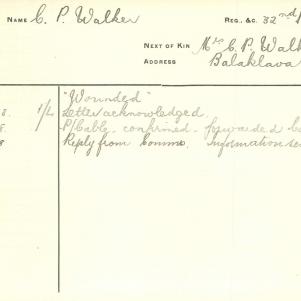 NAME C. P. Walker
REG., &C. 32nd
NEXT OF KIN Mrs C. P. Walk
ADDRESS Balaklava
"Wounded"
8. 1/L Letter acknowledged.
8. P/Cable, confirmed. forwarded
8 Reply from Commo. Information se